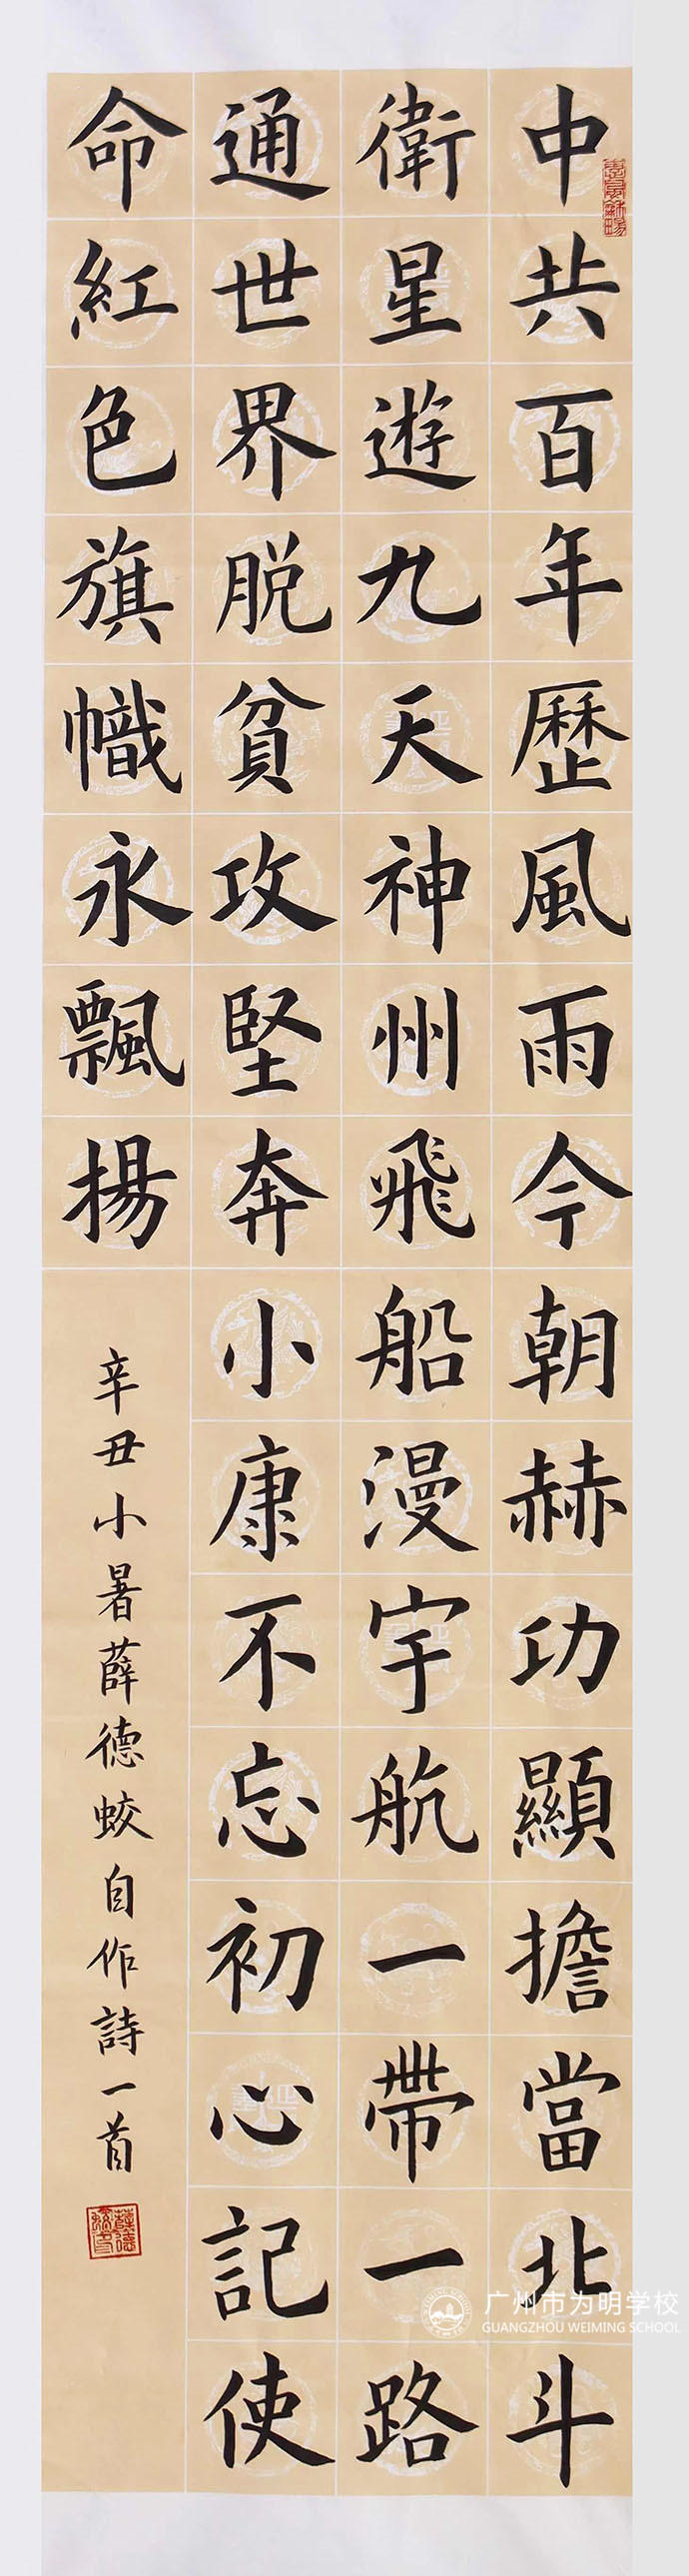 中共百年歷風雨今朝赫功顯擔當北斗
衛星遊九天神州飛船漫宇航一帶一路
通世界脱貧攻堅奔小康不忘初心記使
命紅色旗幟永飄揚
辛丑小暑薛德蛟自作詩一首
广州市为明学校
GUANGZHOU WEIMING SCHOOL